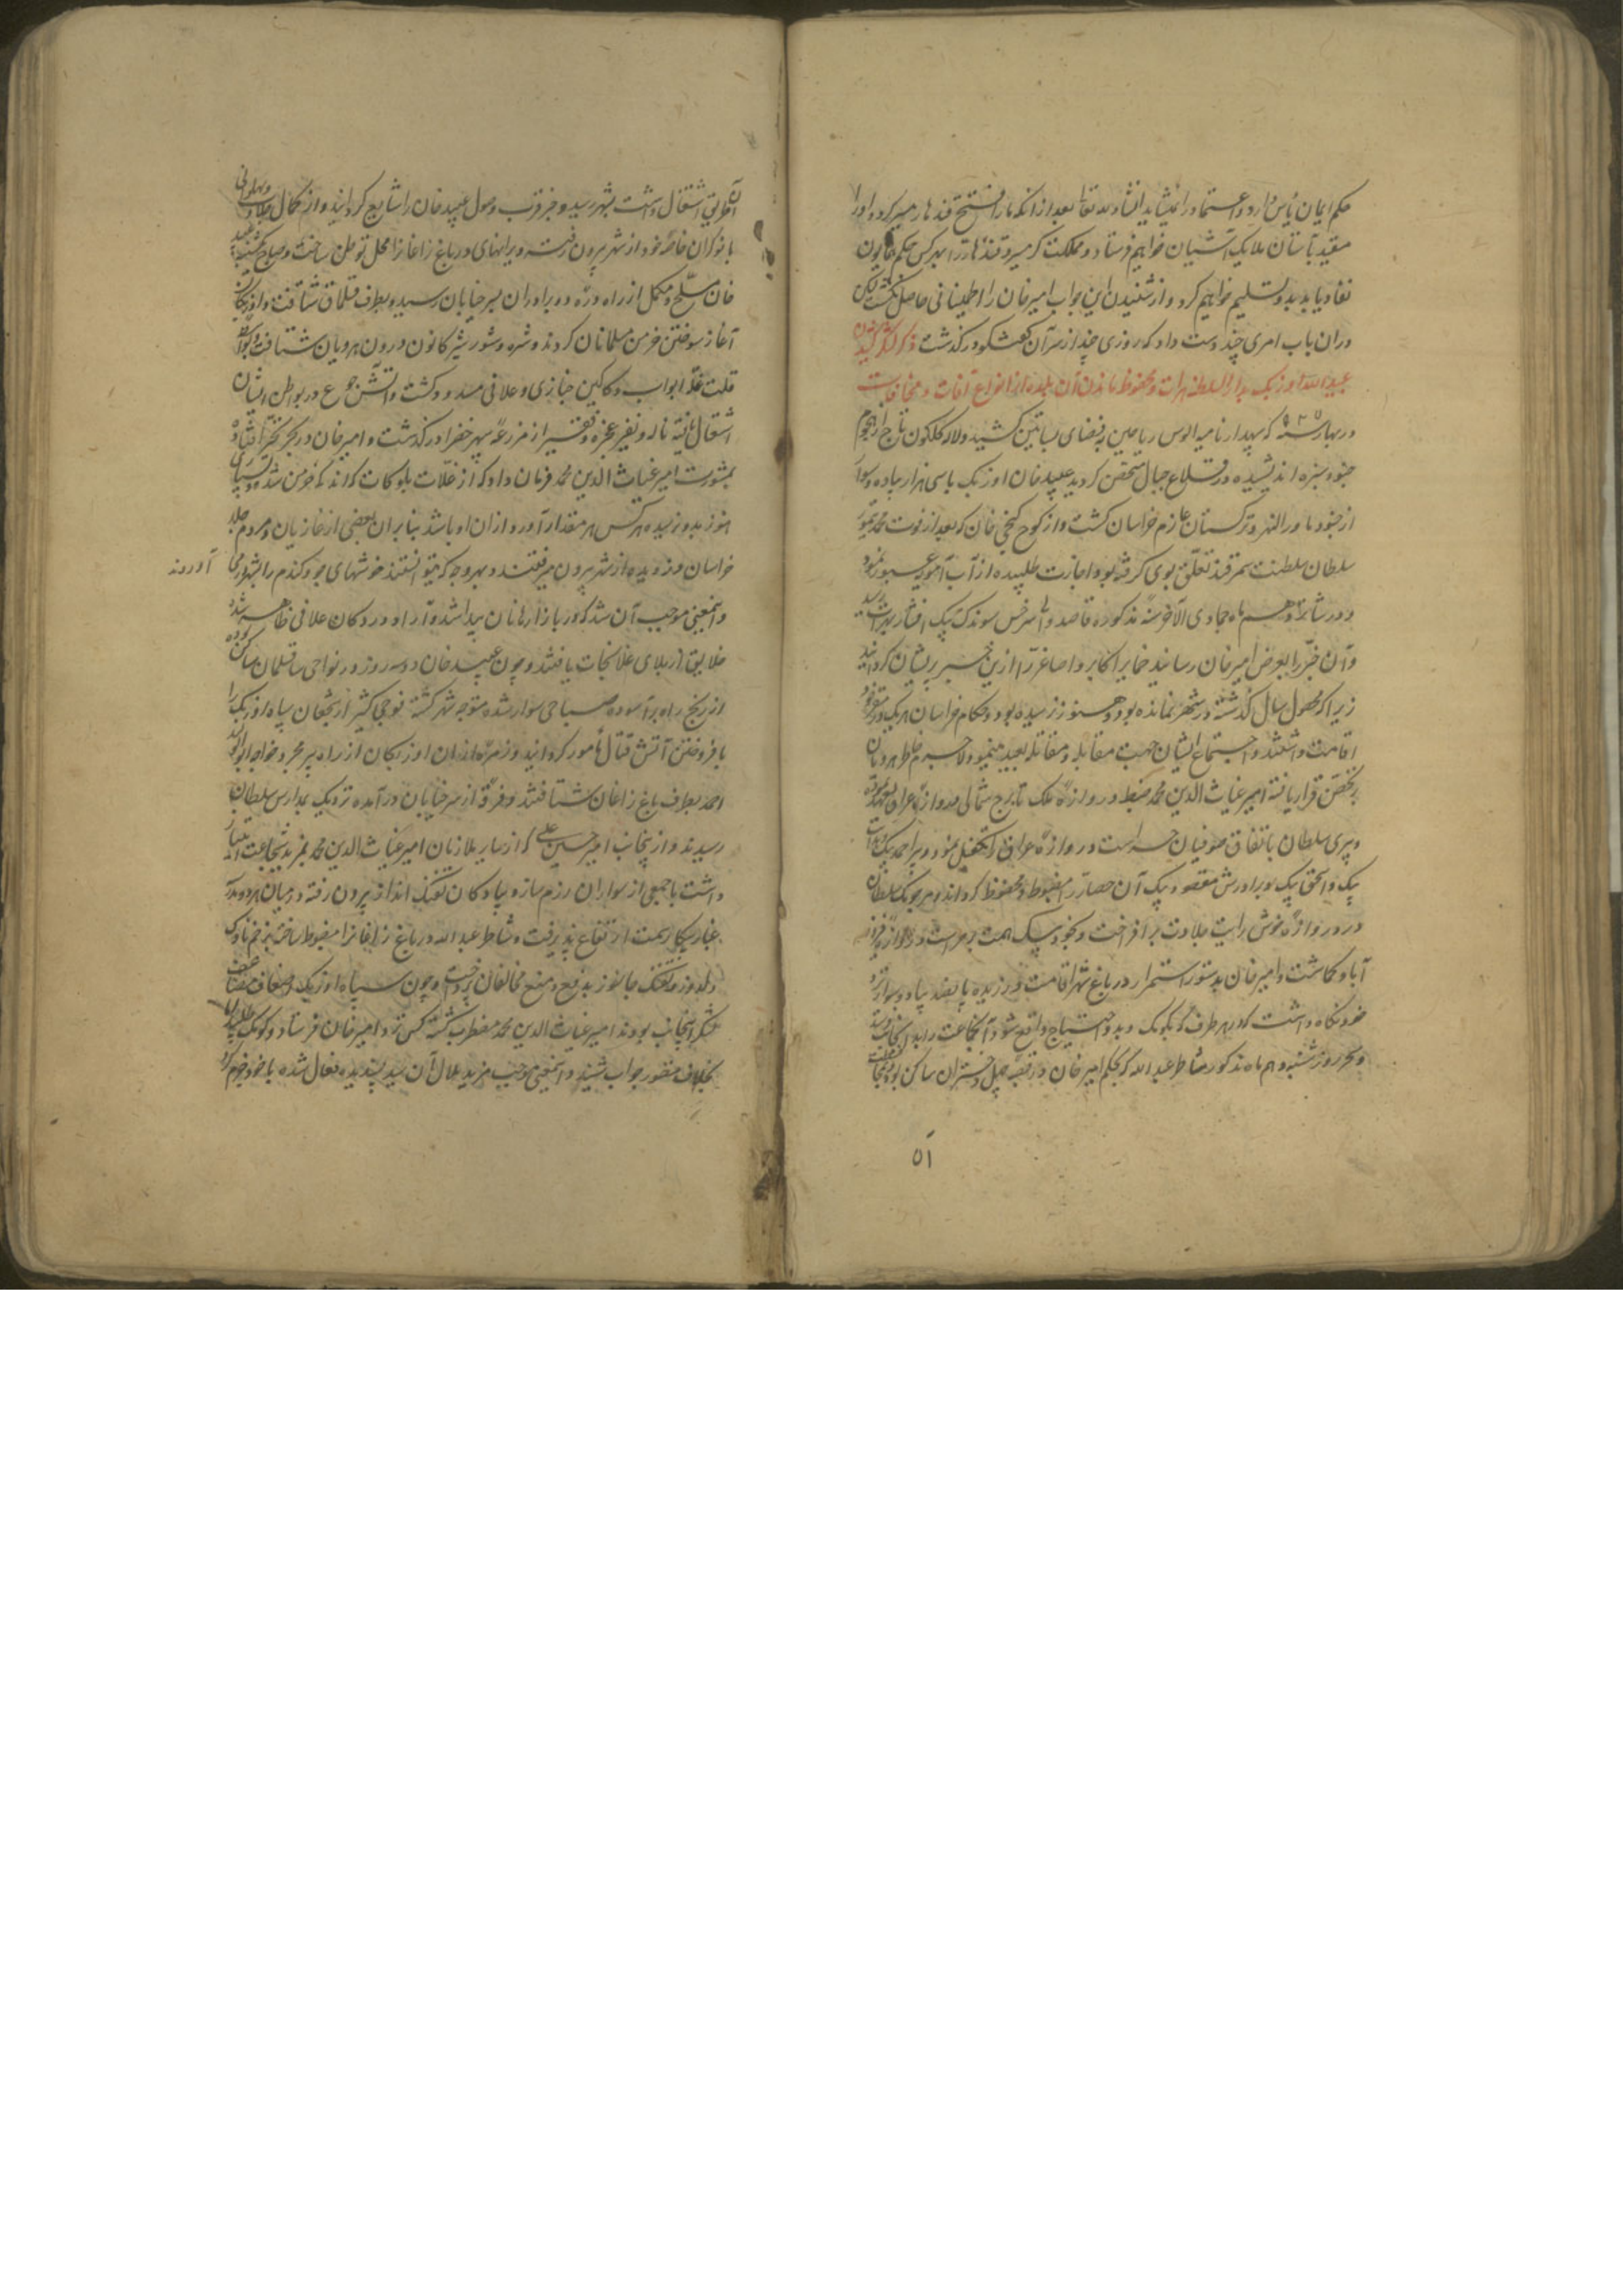 حکم ایمان یأس دارد و اعتماد را نمیشاید انشاء الله تعالی بعد از آنکه ما را فتح قندهار میسر گردد او را
مقید بآستان ملایک آشیان خواهیم فرستاد و مملکت گرمسیر و قندهار را بهر کس حکم همایون
نفاذ یابد بدو تسلیم خواهیم کرد و از شنیدن این جواب امیر خان را اطمینانی حاصل نکشت لیکن
دران باب امری چند دست داد که روزی چند از سر آن گفتگو در گذشت ذکر لشکر کشیدن
عبید الله اوزبک بدار السلطنه هرات و محفوظ ماندن آن بلده از انواع آفات و مخافات
در بهار سنه که سپهدار نامیه الوس ریاحین بفضای بساتین کشید و لاله گلگون تاج از هجوم
جنود سبزه اندیشیده در قلاع جبال متحصن گردید عبید خان اوزبک با سی هزار پیاده و سوار
از جنود ماورالنهر و ترکستان عازم خراسان گشت و از کوچ کنجی خان که بعد از فوت محمد تیمور
سلطان سلطنت سمرقند تعلق بوی گرفته بود اجازت طلبیده از آب آمویه عبور نمود
و در شانزدهم ماه جمادی الآخر سنه مذکوره قاصد والی سرخس سوندک بیک افشار بهرات رسید
و آن خبر را بعرض امیر خان رسانید ضمایر اکابر و اصاغر را ازین خبر پریشان گردانید
زیرا که محصول سال گذشته در شهر نمانده بود و هنوز نرسیده بود و حکام خراسان هر یک در مقر خود
اقامت داشتند و اجتماع ایشان جهت مقابله و مقاتله بعید مینمود لاجرم خاطر هرویان
بر تحصن قرار یافته امیر غیاث الدین محمد ضبط دروازه ملک تا برج شمالی دروازه عراق بعهده نموده
و پیری سلطان باتفاق صوفیان حراست دروازه عراق را متکفل نمود و میر احمد بیک
بیک و الحق بیک و برادرش مقصود بیک آن حصار را مضبوط و محفوظ گردانیدند و مرجومک سلطان
در دروازه خوش رایت جلادت بر افراخت و نخود بیک همت بر حراست دروازه فیروز
آباد گماشت و امیر خان بدستور استمرار در باغ شهر اقامت ورزیده پانصد پیاده و سوار نزد
خود نگاه داشت که در هر طرف که بکومک و مدد احتیاج واقع شود آن جماعت را بدان جانب فرستد
و سحر روز شنبه دهم ماه مذکور شاطر عبد الله که بحکم امیر خان در قصبه چهل دختران ساکن بود و بمحافظت
۵۱
آن طریق اشتغال داشت بشهر رسید و خبر قرب وصول عبید خان را شایع گردانید و از کمال جلادت و پهلوانی
با نوکران خاصه خود از شهر بیرون رفته ویرانهای در باغ زاغان را محل توطن ساخت و صباح یکشنبه عبید
خان مسلح و مکمل از راه دره دو برادران بسر خیابان رسید و بطرف قلماق شتافت و اوزبکان
آغاز سوختن خرمن مسلمانان کردند و شره و شور شر بکانون درون هرویان شتافت و بواسطه
قلت غله ابواب دکاکین خبازی و علافی مسدود گشت و آتش جوع در بواطن ایشان
اشتعال یافته ناله و نفیر عجزه و فقیر از مزرعه سپهر خضرا در گذشت و امیر خان در بحر تحیر افتاده
بمشورت امیر غیاث الدین محمد فرمان داد که از غلات بلوکات که اندکه خرمن شده و سپاهی
هنوز بدو نرسیده هر کس هر مقدار آورد از آن او باشد بنا بر ان بعضی از غازیان و مردم جلد
خراسان دزدیده از شهر بیرون میرفتند و بهر وجه که میتوانستند خوشهای جو و گندم را بشهر در می آوردند
و این معنی موجب آن شد که در بازارها نان پیدا شد و آرد در دکان علافی ظاهر شد و
خلایق از بلای غلا نجات یافتند و چون عبید خان دو سه روز در نواحی ساقلمان ساکن بوده
از رنج راه بر آسوده صباحی سوار شده متوجه شهر گشته فوجی کثیر از شجعان سپاه اوزبک را
بافروختن آتش قتال مامور گردانید و زمره از ان اوزبکان از راه پیر مجرد خواجه ابو الولید
احمد بطرف باغ زاغان شتافتند و فرقه از سر خیابان در آمده نزدیک بمدارس سلطان
رسیدند و از ینجانب امیر حسین علی که از سایر ملازمان امیر غیاث الدین محمد بمزید شجاعت امتیاز
داشت با جمعی از سواران رزم ساز و پیادگان تفنگ انداز بیرون رفته در میان هر دو مدرسه
غبار پیکار سمت ارتفاع پذیرفت و شاطر عبد الله در باغ زاغان را مضبوط ساخته بزخم ناوک
دلدوز و تفنگ جانسوز بدفع و منع مخالفان پرداخت و چون سپاه اوزبک اضعاف مضاعف
لشکر اینجانب بودند امیر غیاث الدین محمد مضطرب گشته کس نزد امیر خان فرستاد و کومک طلبید اما
بخلاف متصور جواب شنید و این معنی موجب مزید ملال آن سید پسندیده فعال شده با خود جزم کرد